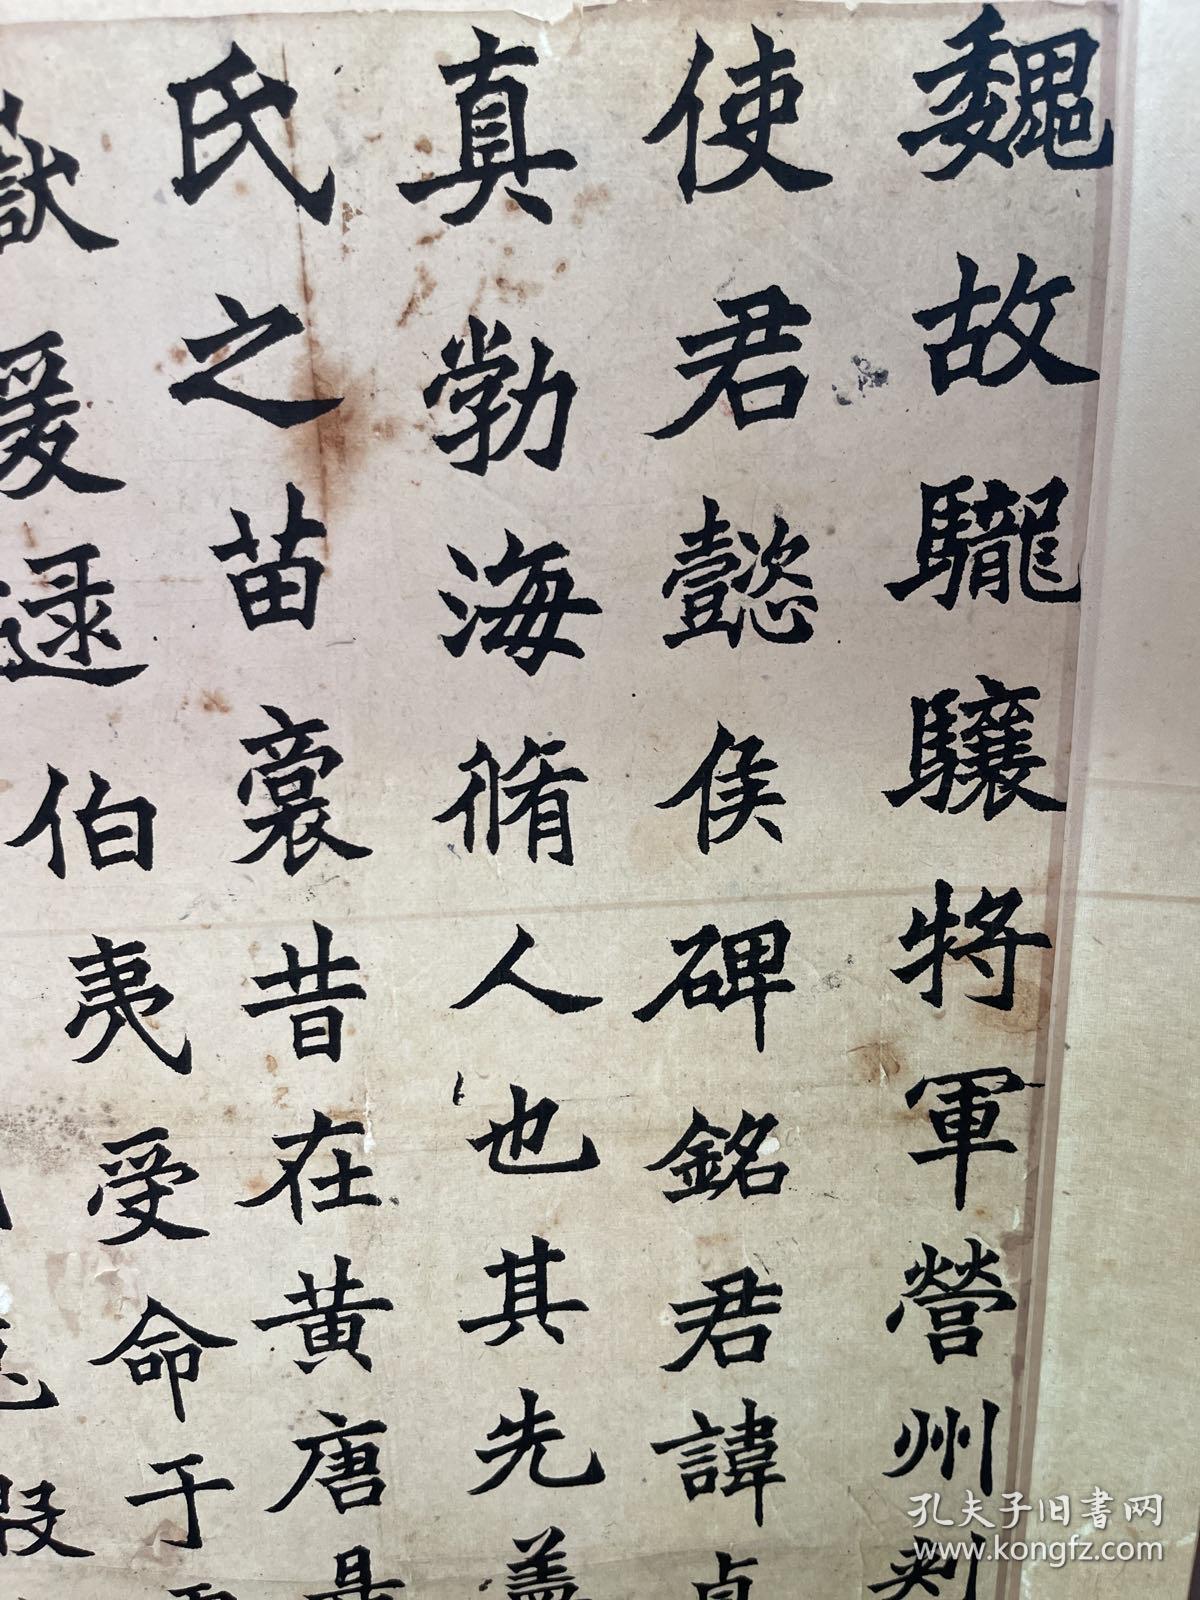 魏故驡驤将軍營州刾
使君懿侯碑銘君諱貞
真勃海脩人也其先盖
氏之苗裔昔在黄唐是
嶽爰逯伯夷受命于
孔夫子旧書网
www.kongfz.com